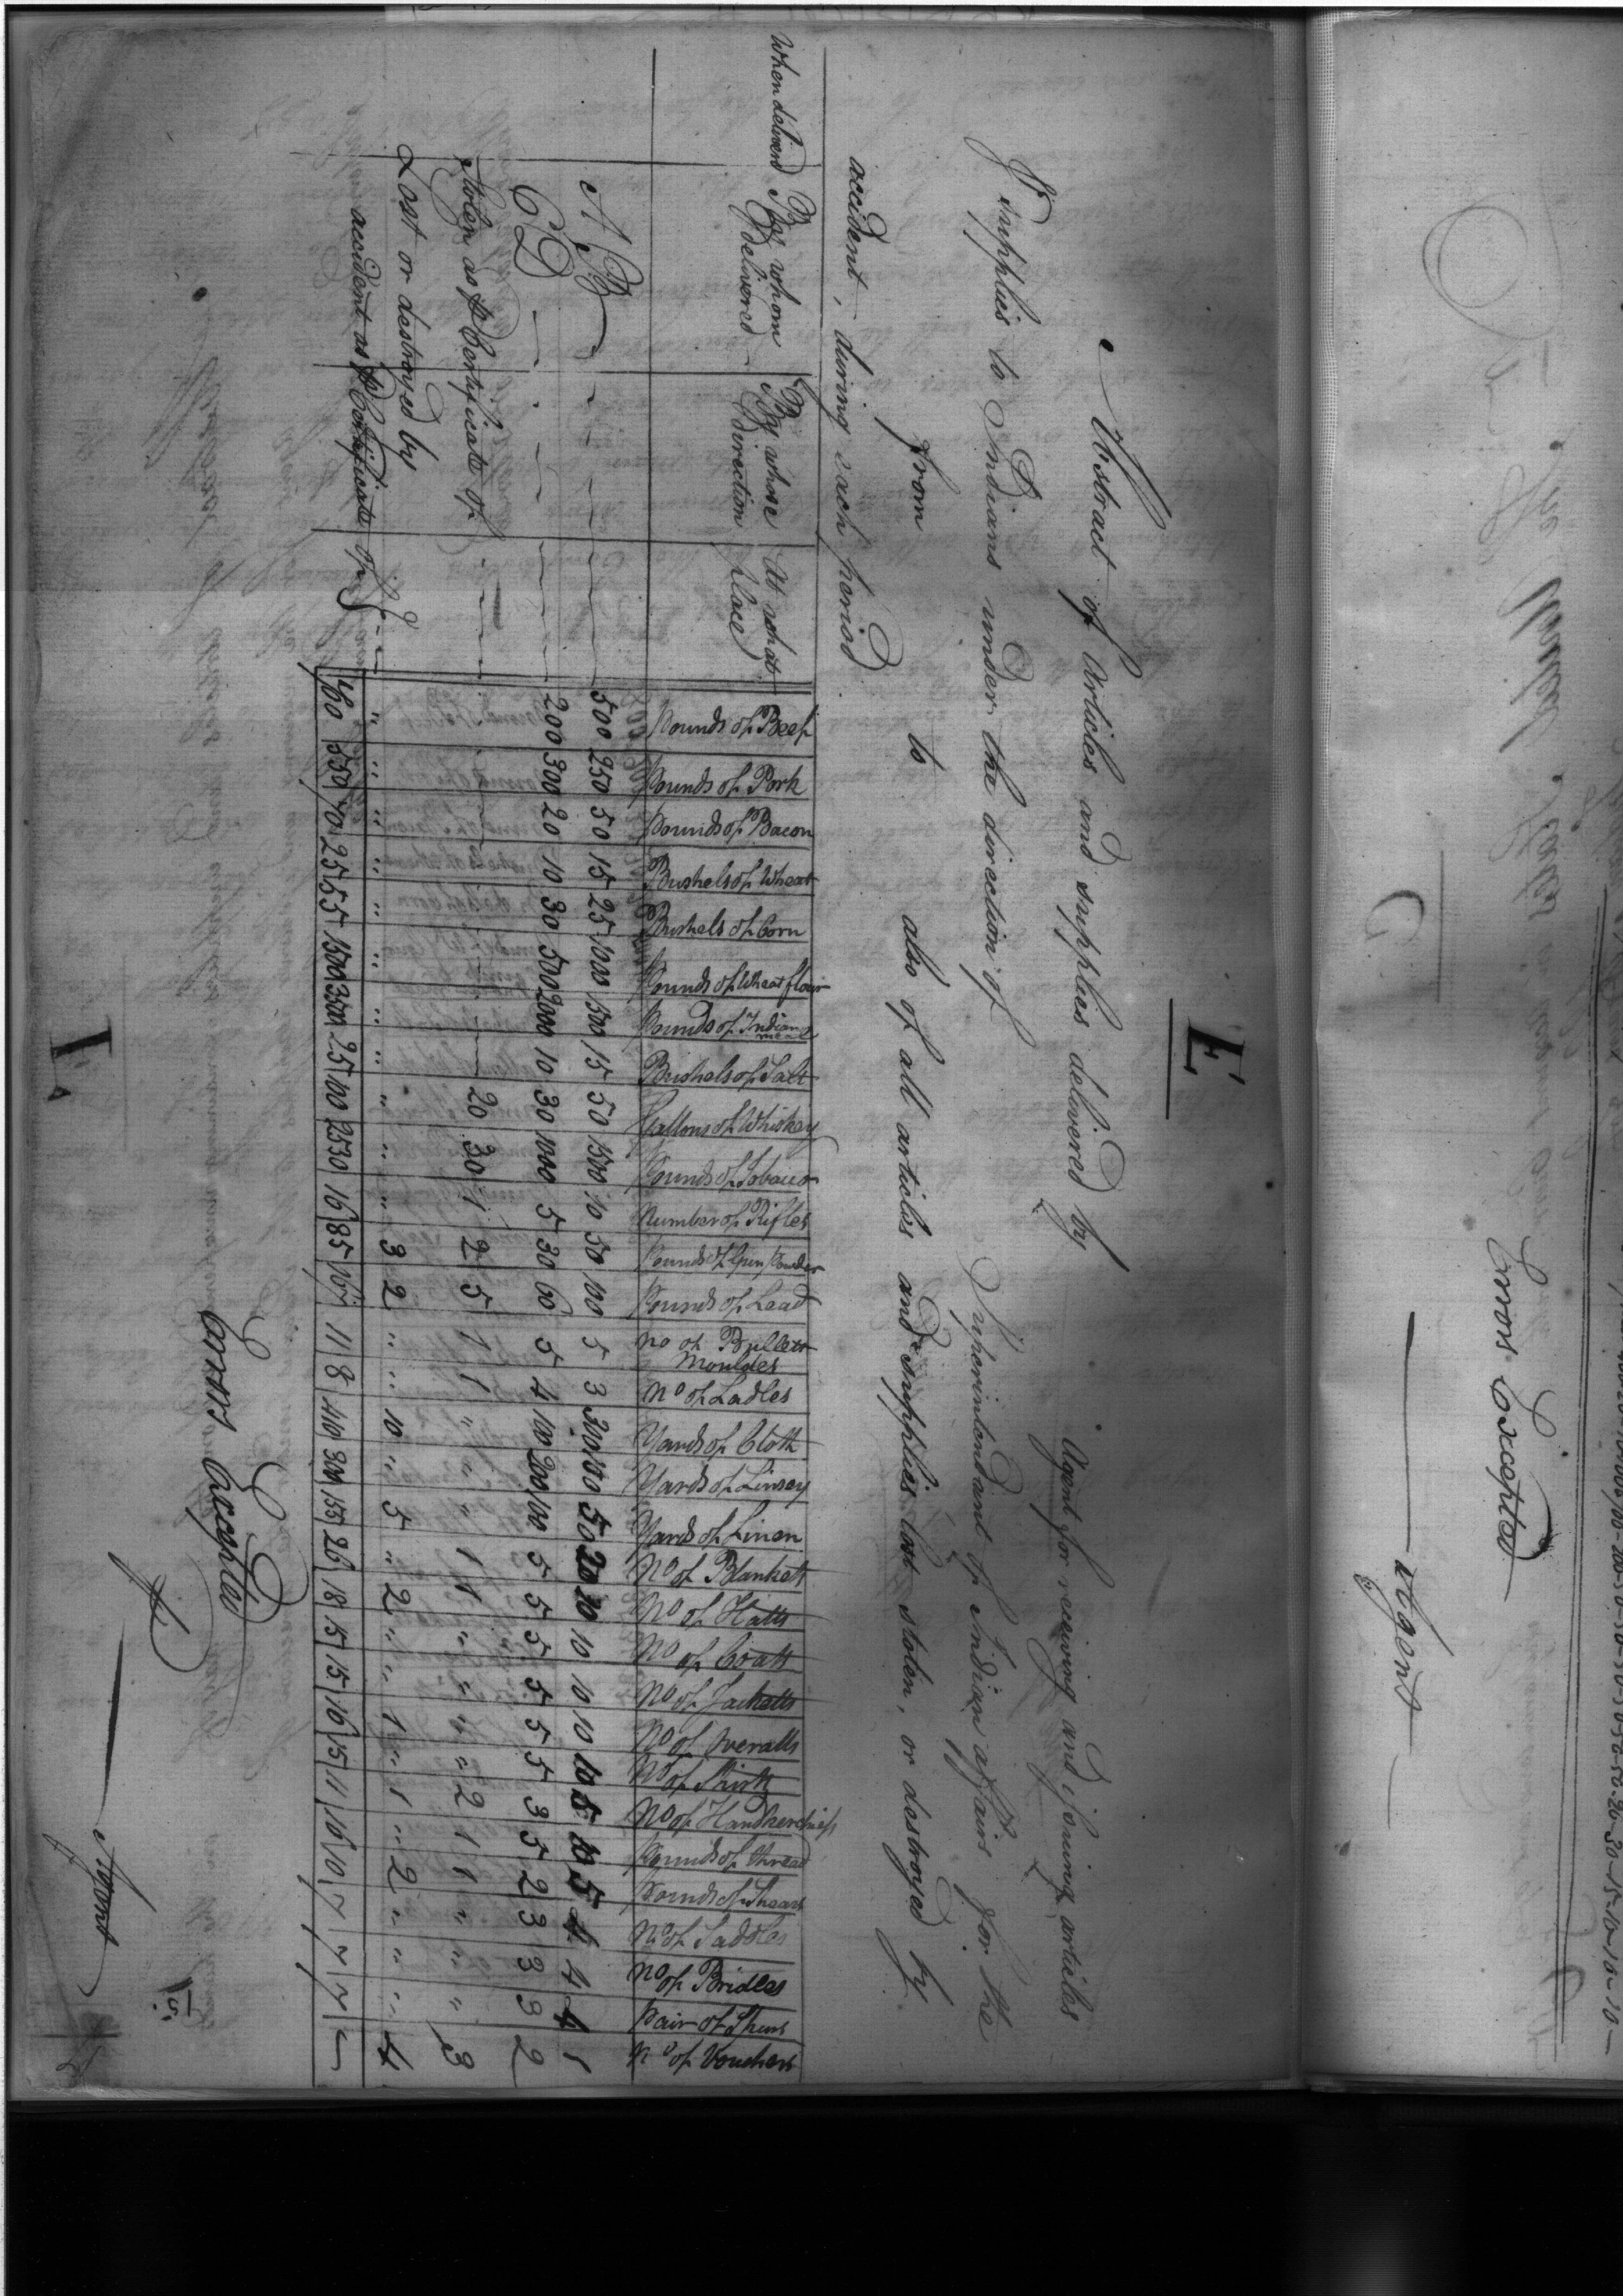 E
Abstract of Articles and supplies delivered by Agent for receiving and issuing articles
& supplies to Indians under the direction of Superintendant of Indian affairs for the
from to also of all articles and supplies lost, stolen, or destroyed by
accident, during each period
When delivered | By whom delivered | By whose direction | At what place | Pounds of Beef | Pounds of Pork | Pounds of Bacon | Bushels of Wheat | Bushels of Corn | Pounds of Wheat flour | Pounds of Indian meal | Bushels of Salt | Gallons of Whiskey | Pounds of Tobacco | Number of Rifles | Pounds of Gun Powder | Pounds of Lead | No of Bullets Moulds | No of Ladles | Yards of Cloth | Yards of Linsey | Yards of Linen | No of Blanketts | No of Hatts | No of Coatts | No of Jacketts | No of Overalls | No of Shirts | No of Handkerchiefs | Pounds of thread | Pounds of Shears | No of Saddles | No of Bridles | Pair of Spurs | No of Vouchers
A B 500 250 50 15 25 1000 1500 15 50 1500 10 50 100 5 3 300 100 50 20 10 10 10 10 10 5 10 5 4 4 4 1
C D 200 300 20 10 30 500 2000 10 30 1000 5 30 60 5 4 100 200 100 5 5 5 5 5 5 3 5 2 3 3 3 2
Stolen as pr Certificate of 20 30 1 2 5 1 1 " " " 1 1 " " " " 2 1 1 " " " 3
Lost or destroyed by
accident as pr Certificate of " " " " " " " " " " " 3 2 " " 10 " 5 " 2 " " 1 " 1 " 2 " " " 4
700 550 70 25 55 1500 3500 25 100 2530 16 85 167 11 8 410 300 155 26 18 15 15 16 15 11 16 10 7 7 7
Errors Excepted
Agent
15.
Errors Excepted
Agent